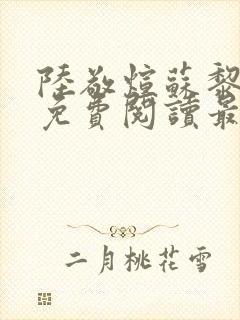 陸敬煊蘇黎
免費閱讀最
二月桃花雪